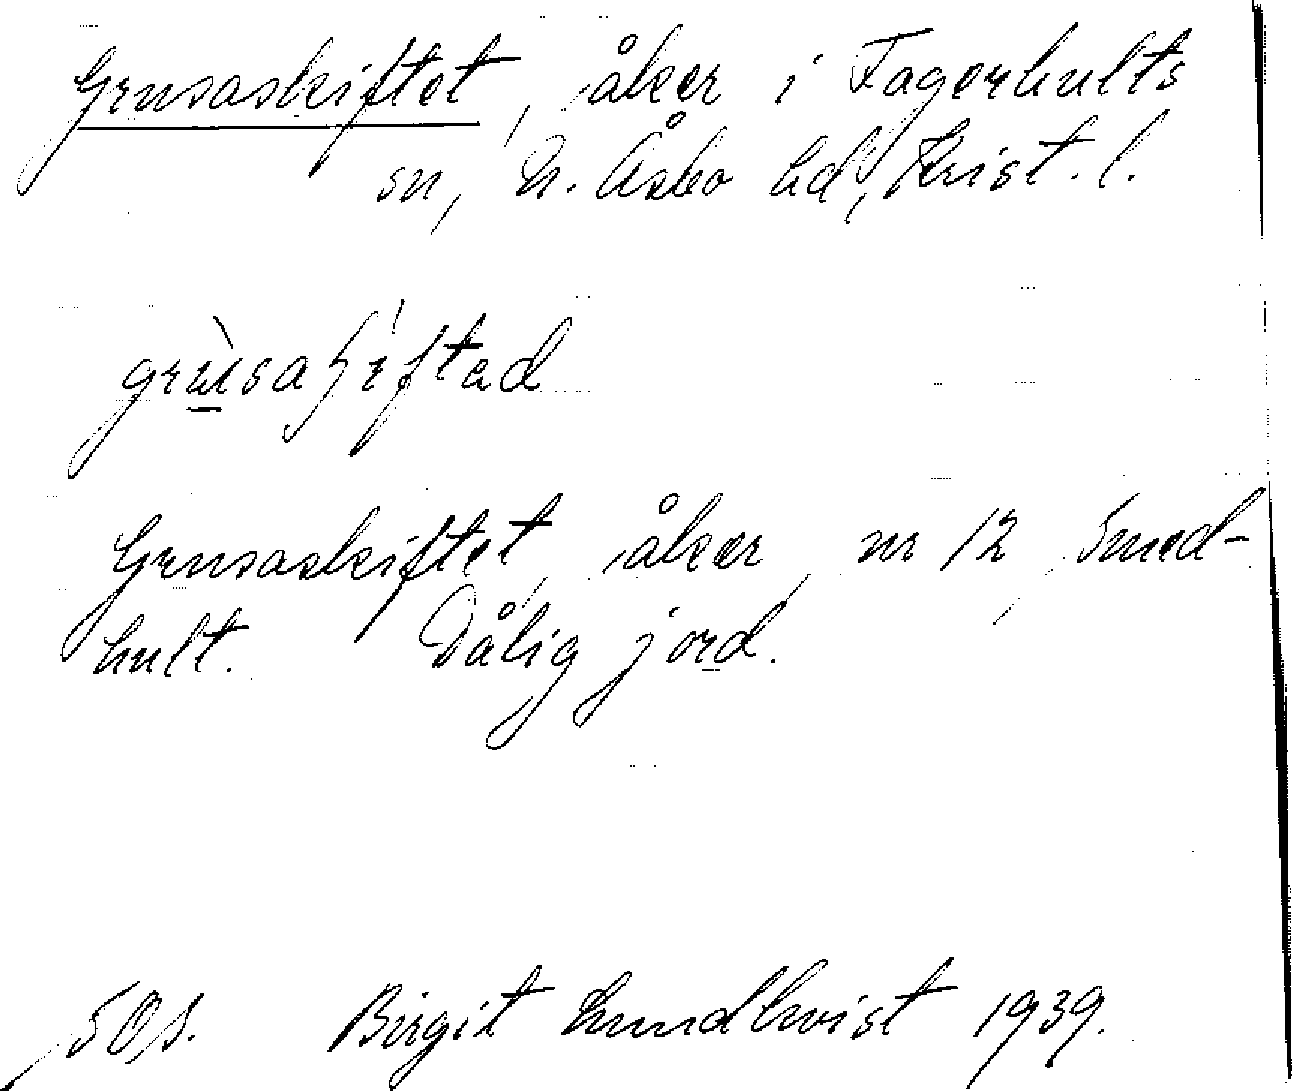 Grusaskiftet, åker i Fagerhults
sn, N. Åsbo hd, Krist. l.
Grusaskiftet, åker, nr 12, Smed-
hult. Dålig jord.
SOS. Birgit Lundkvist 1939.